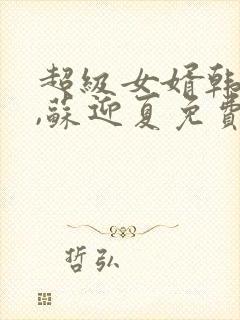 超級女婿韩
,蘇迎夏免費
哲弘